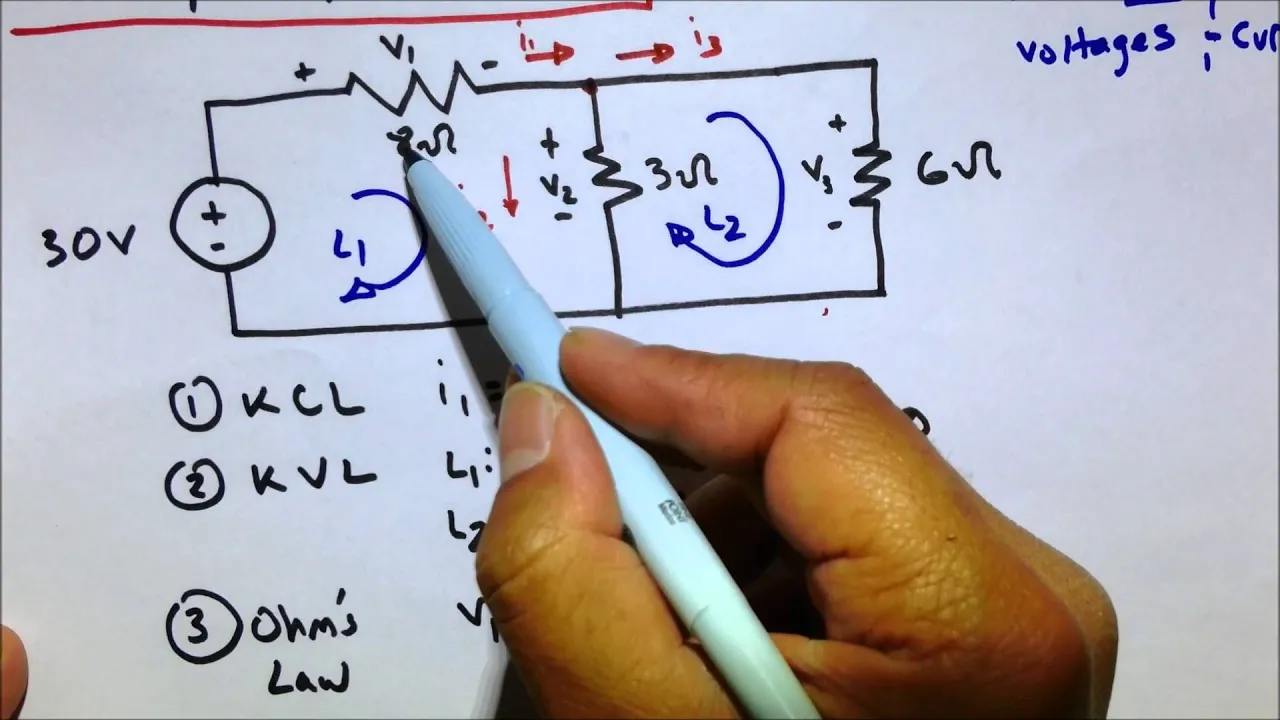 voltages
CV
V₁
i₁
i₃
+
-
Ω
+
V₂
-
3Ω
+
V₃
-
6Ω
30V
+
-
L₁
L₂
① KCL i₁ =
② KVL L₁:
L₂
③ Ohm's V₁
Law